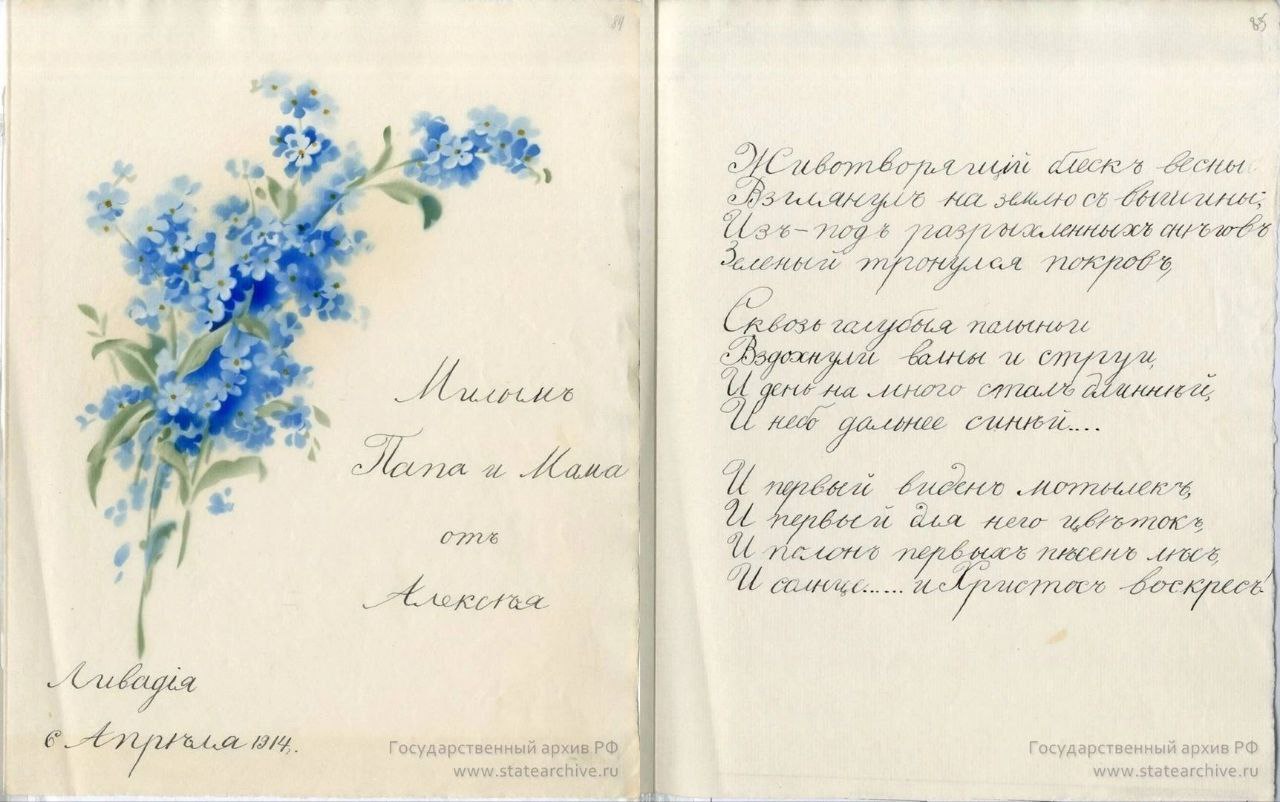 84
Милымъ
Папа и Мама
отъ
Алексѣя
Ливадія
6 Апрѣля 1914.
Государственный архив РФ
www.statearchive.ru
85
Животворящій блескъ весны
Взглянулъ на землю съ вышины;
Изъ-подъ разрыхленныхъ снѣговъ
Зеленый тронулся покровъ,
Сквозь голубыя полыньи
Вздохнули волны и струи,
И день на много сталъ длиннѣй,
И небо дальнее синѣй....
И первый виденъ мотылекъ,
И первый для него цвѣтокъ,
И полонъ первыхъ пѣсенъ лѣсъ,
И солнце...... и Христосъ воскресъ!
Государственный архив РФ
www.statearchive.ru